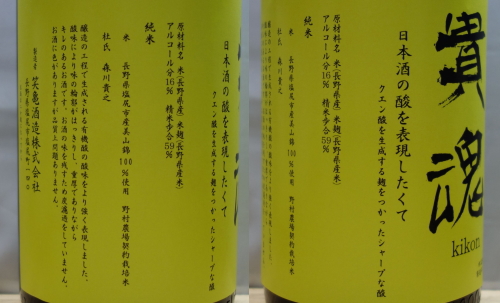 日本酒の酸を表現したくて
クエン酸を生成する麹をつかったシャープな酸
純米
原材料名 米(長野県産)米麹(長野県産米)
アルコール分16% 精米歩合59%
米 長野県塩尻市産美山錦100%使用 野村農場契約栽培米
杜氏 森川貴之
醸造の工程で生成される有機酸の酸味をより強く表現しました。
酸味により味の輪郭がはっきりし、重厚でありながら
キレのあるお酒です。お酒の味を残すため炭濾過をしていません。
お酒に色がありますが品質上問題ありません。
製造者 笑亀酒造株式会社
長野県塩尻市塩尻町一四〇
貴魂
kikon
日本酒の酸を表現したくて
クエン酸を生成する麹をつかったシャープな酸
純米
原材料名 米(長野県産)米麹(長野県産米)
アルコール分16% 精米歩合59%
米 長野県塩尻市産美山錦100%使用 野村農場契約栽培米
杜氏 森川貴之